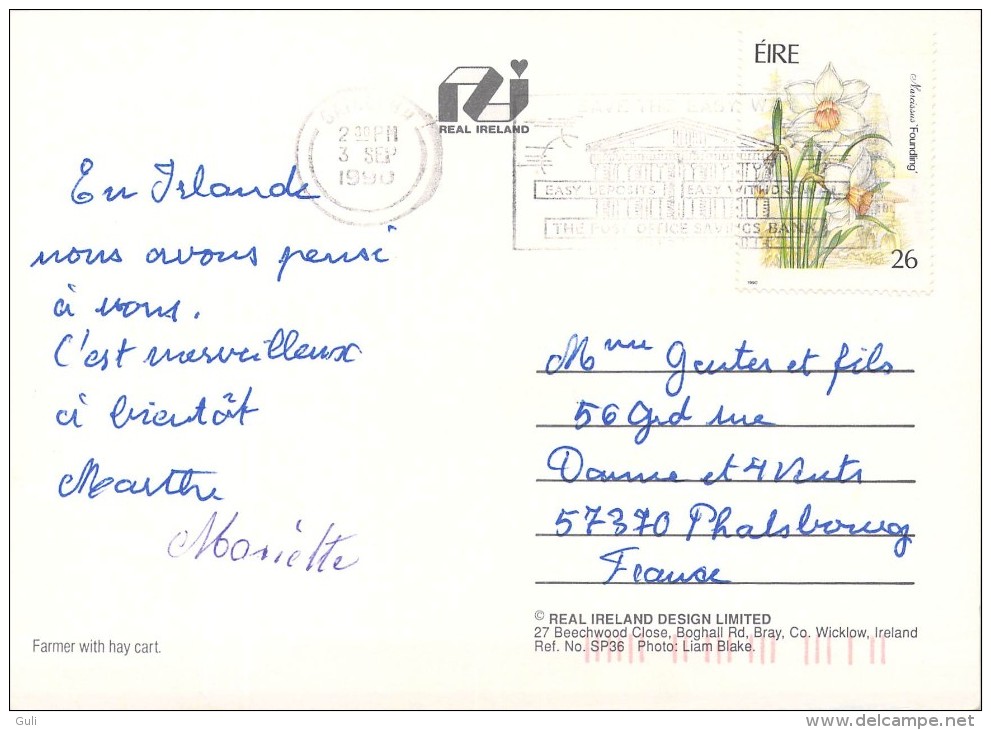 ÉIRE
Narcissus 'Foundling'
26
1990
REAL IRELAND
2 30 PM
3 SEP
1990
SAVE THE EASY WAY
EASY DEPOSITS EASY WITHDRAWALS
THE POST OFFICE SAVINGS BANK
En Irlande
nous avons pensé
à vous.
C'est merveilleux
à bientôt
Marthe
Mariette
Mme Genter et fils
56 Grd rue
Danne et 4 Vents
57370 Phalsbourg
France
© REAL IRELAND DESIGN LIMITED
27 Beechwood Close, Boghall Rd, Bray, Co. Wicklow, Ireland
Ref. No. SP36 Photo: Liam Blake.
Farmer with hay cart.
Guli
www.delcampe.net